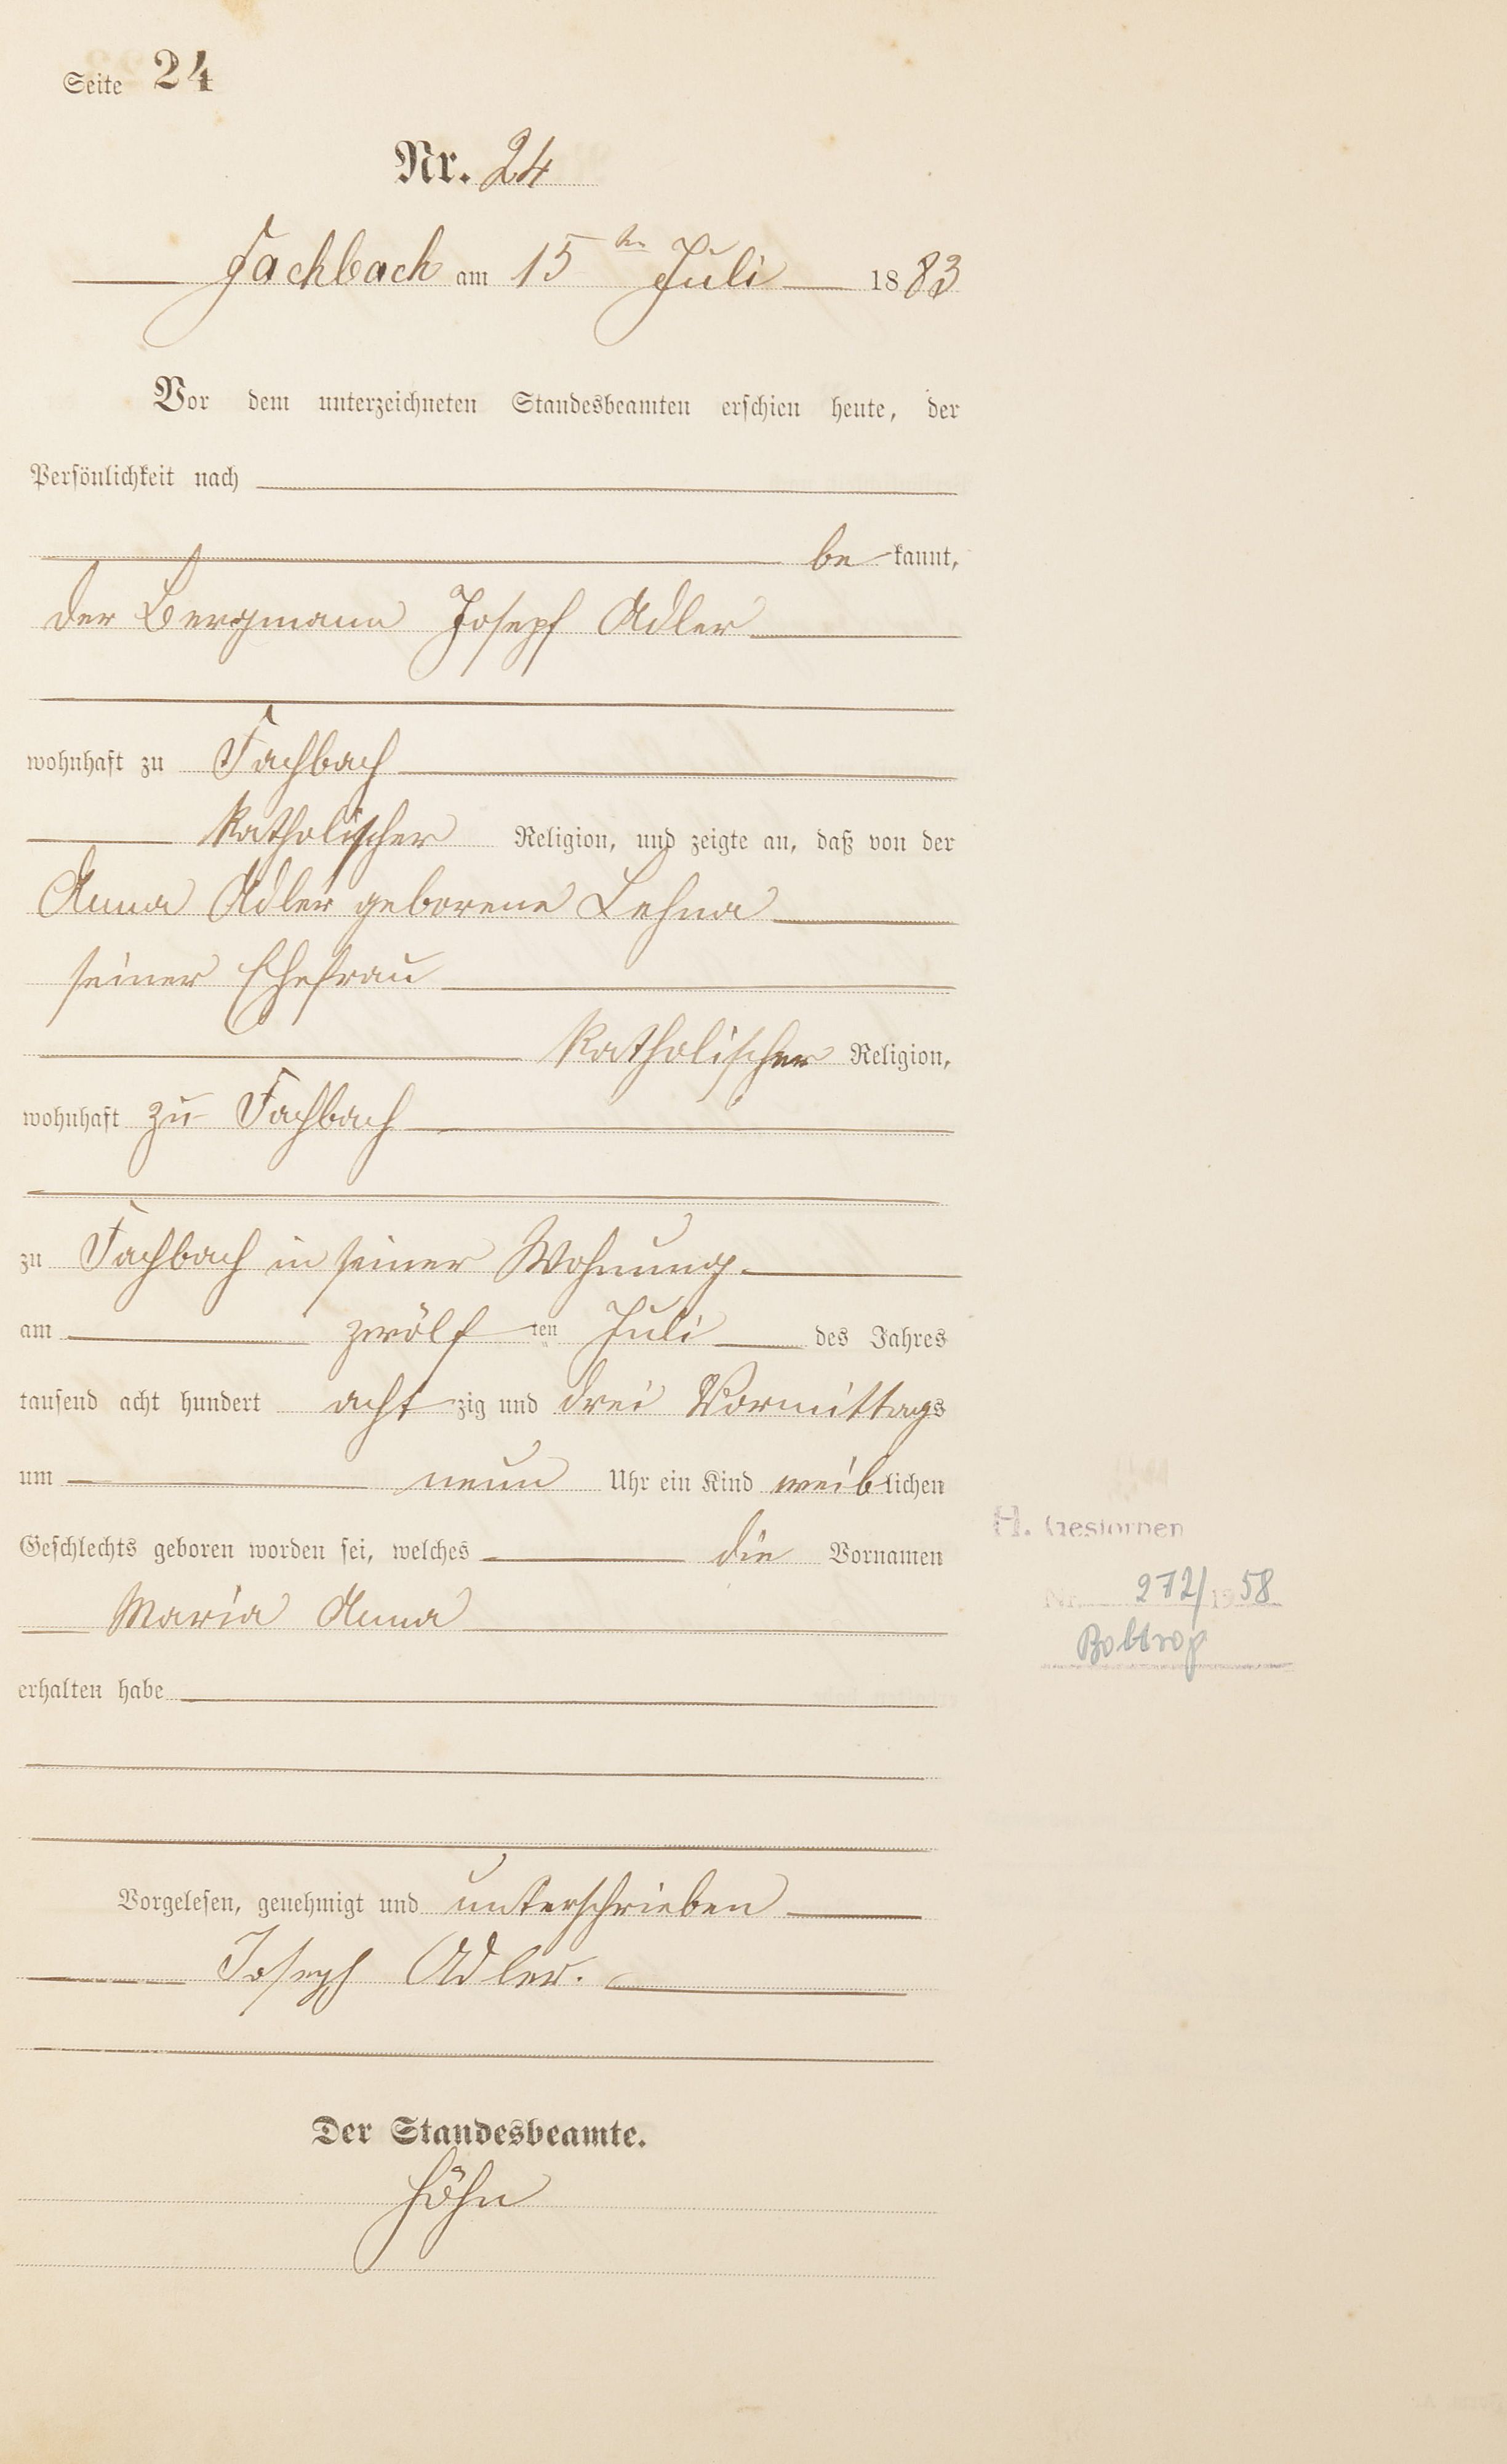 Seite 24
Nr. 24
Fachbach am 15ten Juli 1883
Vor dem unterzeichneten Standesbeamten erschien heute, der
Persönlichkeit nach
be kannt,
der Bergmann Josepf Adler
wohnhaft zu Fachbach
katholischer Religion, und zeigte an, daß von der
Anna Adler geborene Lehna
seiner Ehefrau
katholischer Religion,
wohnhaft zu Fachbach
zu Fachbach in seiner Wohnung
am zwölf ten Juli des Jahres
tausend acht hundert acht zig und drei Vormittags
um neun Uhr ein Kind weiblichen
Geschlechts geboren worden sei, welches die Vornamen
Maria Anna
erhalten habe
H. Gestorben
Nr. 272/1958
Bottrop
Vorgelesen, genehmigt und unterschrieben
Joseph Adler.
Der Standesbeamte.
Höhn